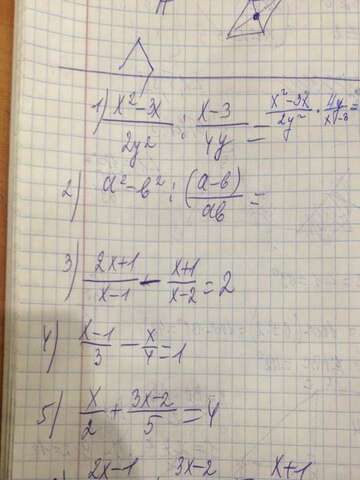 1) (x²-3x)/(2y²) : (x-3)/(4y) = (x²-3x)/(2y²) · (4y)/(x-3) =
2) a²-b² : (a-b)/(ab) =
3) (2x+1)/(x-1) - (x+1)/(x-2) = 2
4) (x-1)/3 - x/4 = 1
5) x/2 + (3x-2)/5 = 4
2x-1 3x-2 x+1